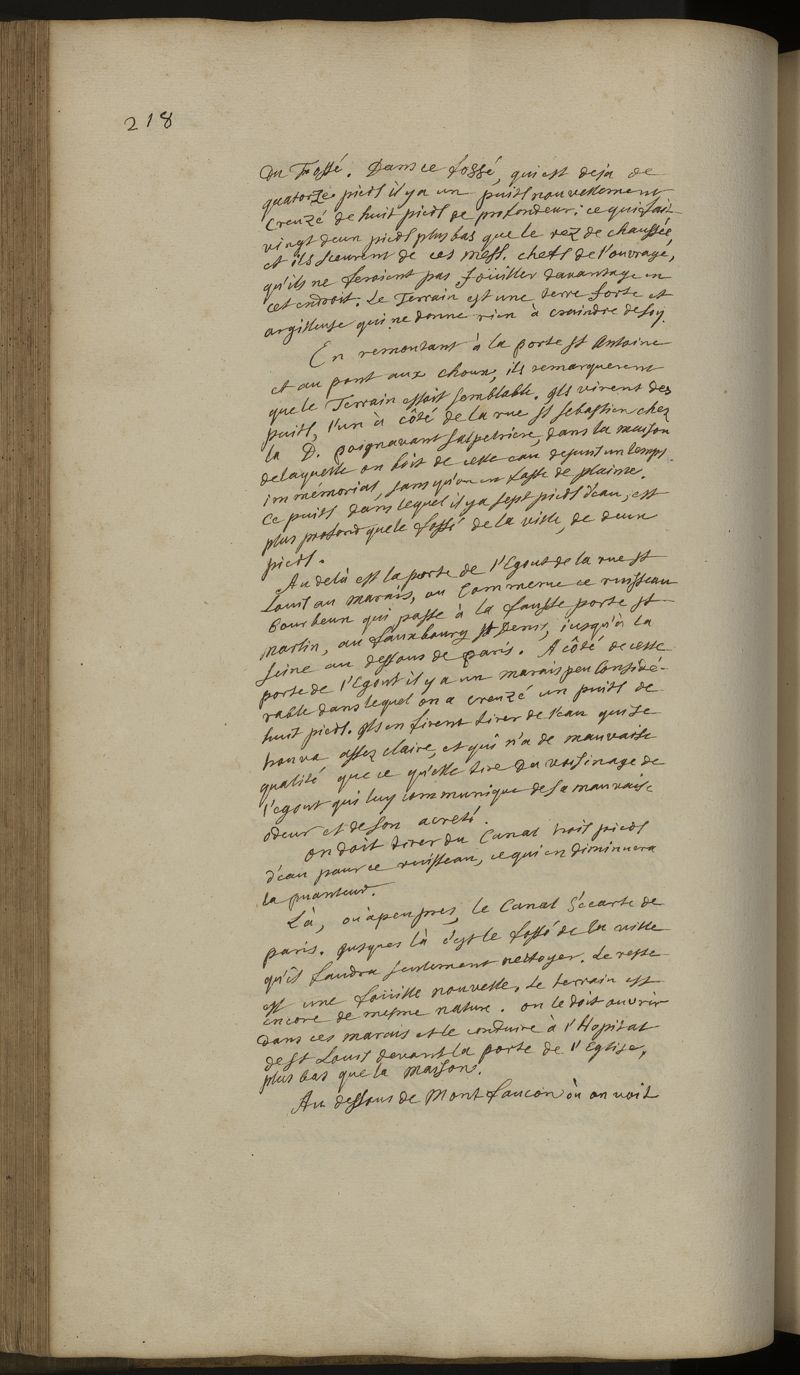 218
Du Fossé. Dans ce fossé, qui est deja de
quatorze pieds il y a un puits nouvellement
Creuzé de huit pieds de profondeur: ce qui fait
vingt deux pieds plus bas que le rez de chaussée,
et ils sceurent de ces mess. chefs de l'ouvrage,
qu'ils ne feroient pas foüiller davantage en
cet endroit. Le Terrain est une terre forte et
argilleuse qui ne donne rien à craindre de soy.
En remontant à la porte St Antoine
et au pont aux choux, ils remarquerent
que le Terrain estoit semblable. Ils virent des
puits, l'un à côté de la rue St Sebastien chez
la D. poignavant salpetriere, dans la maison
de laquelle on boit de cette eau depuis un temps
immémorial, sans qu'on en fasse de plainte.
Ce puits dans lequel il y a sept pieds d'eau, est
plus profond que le fossé de la ville, de deux
pieds.
Au delà est la porte de l'Egout de la rue St
Louis au marais, ou Commence ce ruisseau
bourbeux qui passe à la fausse porte St
Martin, au fauxbourg St Denis, jusqu'à la
Seine au dessous de paris. A côté de cette
porte de l'Egout il y a un marais peu Considé-
rable dans lequel on a creuzé un puits de
huit pieds. Ils en firent tirer de l'eau qui se
trouva assez claire, et qui n'a de mauvaise
qualité que ce qu'elle tire du voisinage de
l'egout qui luy communique de sa mauvaise
odeur et de son acreté.
On doit tirer du Canal trois pieds
d'eau pour ce ruisseau, ce qui en diminuera
la puanteur.
Là, ou à peu pres, le Canal s'écarte de
paris. Jusques là c'est le fossé de la ville
qu'il faudra seulement nettoyer. Le reste
est une foüille nouvelle, le terrain est
encore de mesme nature. on le doit ouvrir
dans ces marais et le conduire à l'Hopital
de St Louis devant la porte de l'Eglise,
plus bas que la maison.
Au dessous de Montfaucon où on voit